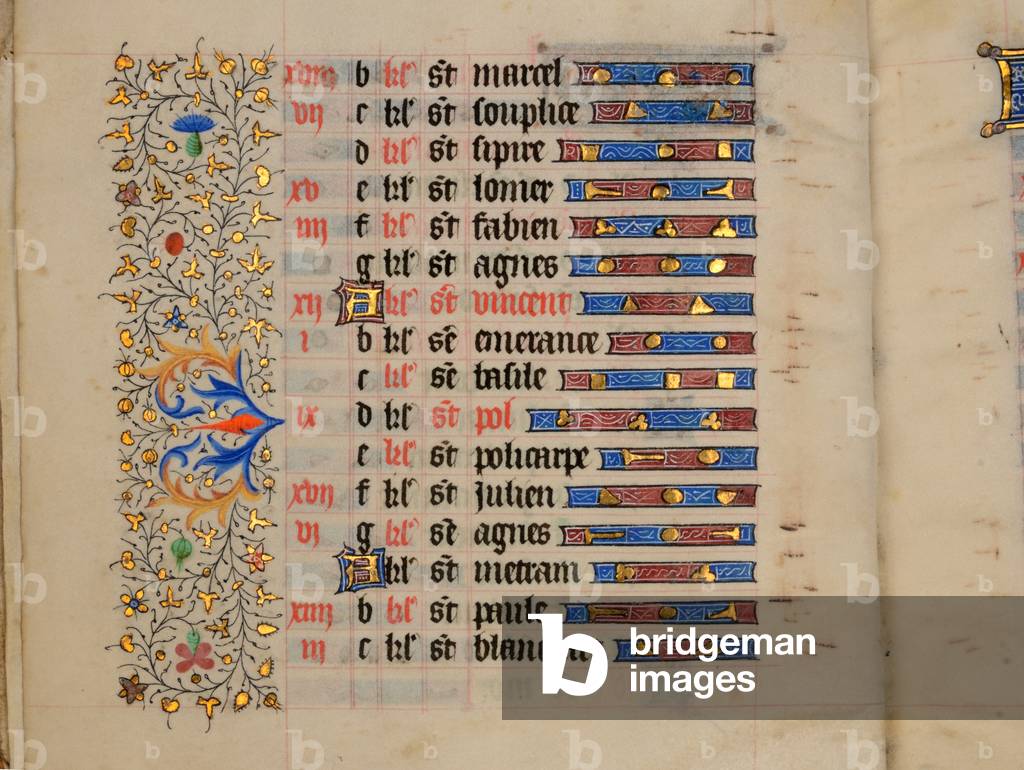 xviii b kl' st marcel
vij c kl' st souplice
d kl' st sipire
xv e kl' st lomer
iiij f kl' st fabien
g kl' st agnes
xij A kl' st vincent
i b kl' se emerance
c kl' se basile
ix d kl' st pol
e kl' st policarpe
xvij f kl' st julien
vj g kl' se agnes
A kl' st metram
xiiij b kl' st paule
iij c kl' st
b bridgeman
images